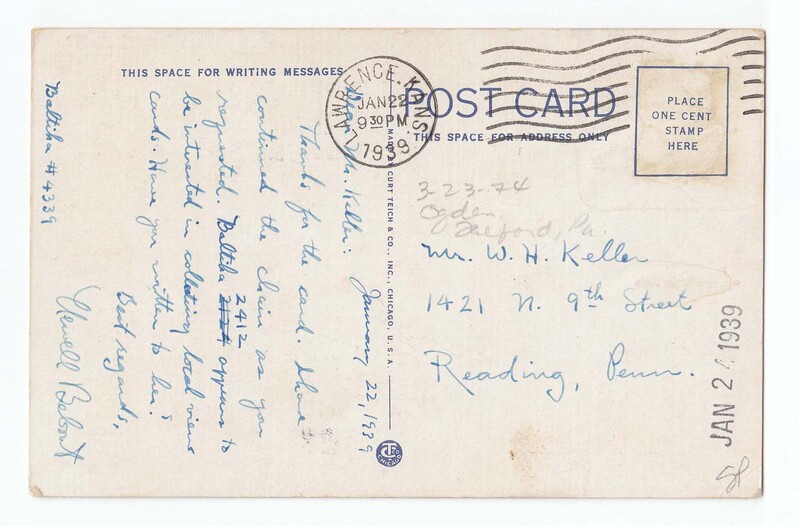 THIS SPACE FOR WRITING MESSAGES
January 22, 1939
Dear Mr. Keller:
Thanks for the card. I have
continued the chain as you
2412
requested. Baltiha appears to
be interested in collecting local view
cards. Have you written to her?
Best regards,
Newell
Baltiha # 4339
LAWRENCE, KANS.
JAN 22
9 30 PM
1939
POST CARD
THIS SPACE FOR ADDRESS ONLY
PLACE
ONE CENT
STAMP
HERE
CURT TEICH & CO., INC., CHICAGO, U.S.A.
CHICAGO
3-23-74
Ogden
Pa.
Mr. W. H. Keller
1421 N. 9th Street
Reading, Penn.
JAN 24 1939